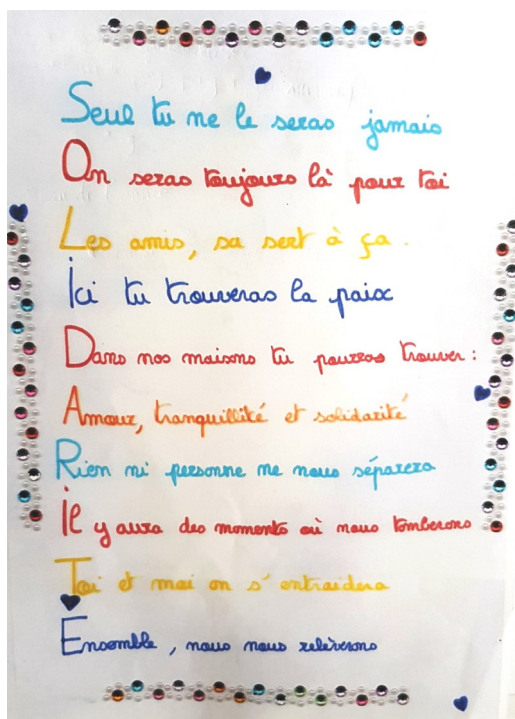 Seul tu ne le seras jamais
On seras toujours là pour toi
Les amis, sa sert à ça.
Ici tu trouveras la paix
Dans nos maisons tu pourras trouver :
Amour, tranquillité et solidarité
Rien ni personne ne nous séparera
Il y aura des moments où nous tomberons
Toi et moi on s'entraidera
Ensemble, nous nous relèverons